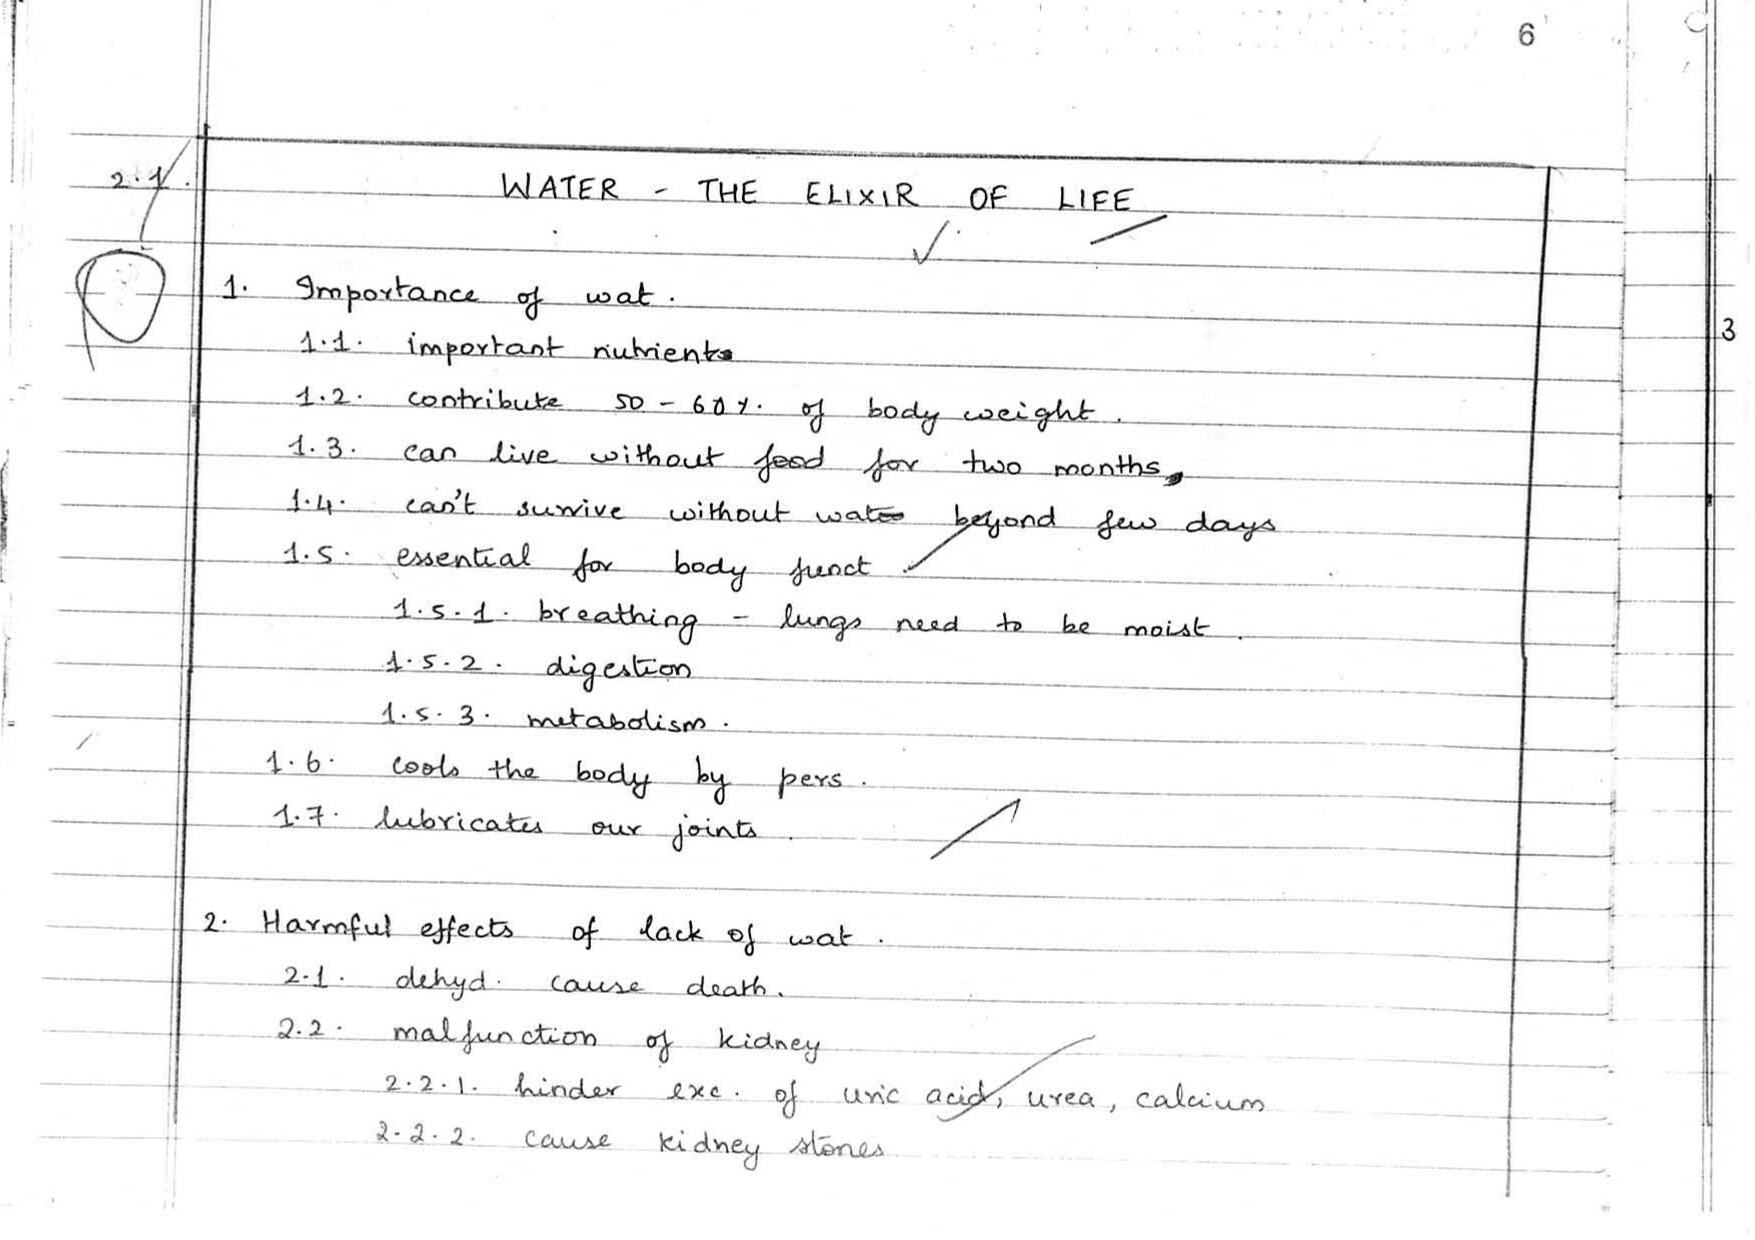 6
2.1. WATER - THE ELIXIR OF LIFE
1. Importance of wat.
3
1.1. important nutrients
1.2. contribute 50 - 60% of body weight.
1.3. can live without food for two months,
1.4. can't survive without wat beyond few days
1.5. essential for body funct
1.5.1. breathing - lungs need to be moist.
1.5.2. digestion
1.5.3. metabolism.
1.6. cools the body by pers.
1.7. lubricates our joints.
2. Harmful effects of lack of wat.
2.1. dehyd. cause death.
2.2. malfunction of kidney
2.2.1. hinder exc. of uric acid, urea, calcium
2.2.2. cause kidney stones